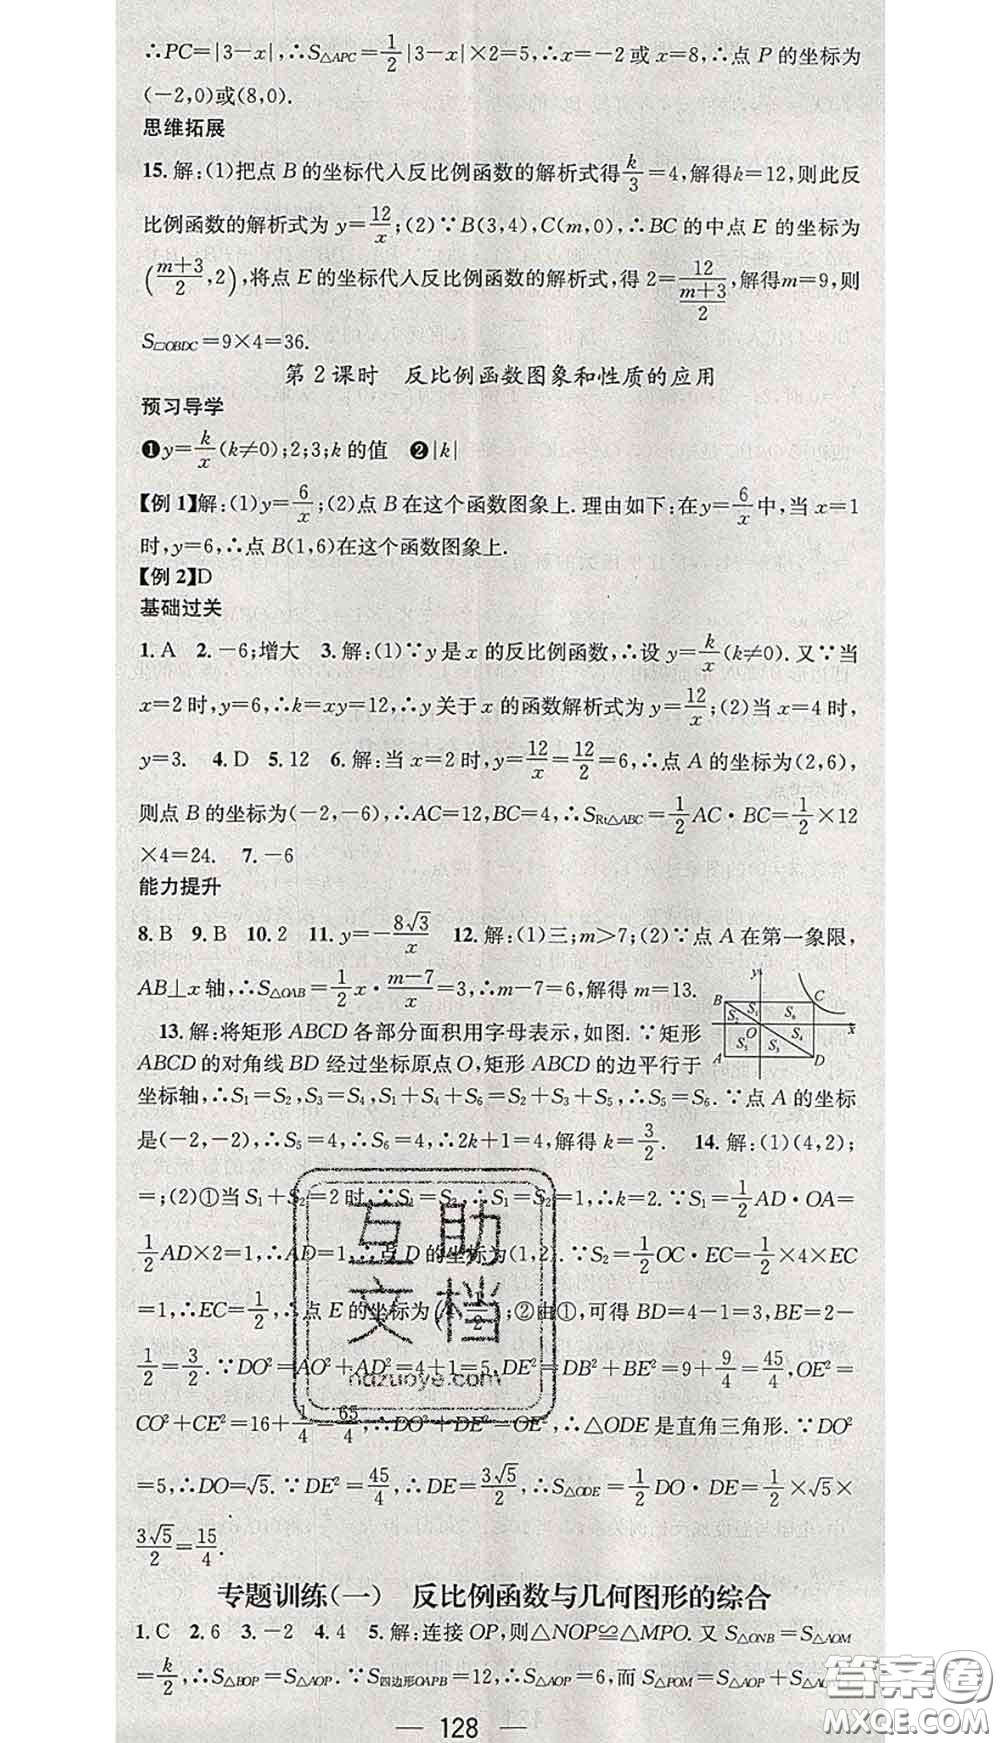 ∴PC=|3-x|,∴S△APC=1/2|3-x|×2=5,∴x=-2或x=8,∴点 P 的坐标为
(-2,0)或(8,0).
思维拓展
15.解:(1)把点 B 的坐标代入反比例函数的解析式得k/3=4,解得k=12,则此反
比例函数的解析式为 y=12/x;(2)∵B(3,4),C(m,0),∴BC 的中点 E 的坐标为
((m+3)/2,2),将点 E 的坐标代入反比例函数的解析式,得 2=12/((m+3)/2),解得m=9,则
S□OBDC=9×4=36.
第 2 课时 反比例函数图象和性质的应用
预习导学
❶y=k/x(k≠0);2;3;k 的值 ❷|k|
【例 1】解:(1)y=6/x;(2)点 B 在这个函数图象上.理由如下:在 y=6/x中,当 x=1
时,y=6,∴点 B(1,6)在这个函数图象上.
【例 2】D
基础过关
1.A 2.-6;增大 3.解:(1)∵y 是 x 的反比例函数,∴设 y=k/x(k≠0).又∵当
x=2 时,y=6,∴k=xy=12,∴y 关于 x 的函数解析式为 y=12/x;(2)当 x=4 时,
y=3. 4.D 5.12 6.解:当 x=2 时,y=12/x=12/2=6,∴点 A 的坐标为(2,6),
则点 B 的坐标为(-2,-6),∴AC=12,BC=4,∴SRt△ABC=1/2AC·BC=1/2×12
×4=24. 7.-6
能力提升
8.B 9.B 10.2 11.y=-8√3/x 12.解:(1)三;m>7;(2)∵点 A 在第一象限,
AB⊥x 轴,∴S△OAB=1/2x·(m-7)/x=3,∴m-7=6,解得 m=13.
13.解:将矩形 ABCD 各部分面积用字母表示,如图.∵矩形
ABCD 的对角线 BD 经过坐标原点 O,矩形 ABCD 的边平行于
坐标轴,∴S1=S2,S3=S4,S1+S4+S6=S2+S3+S5,∴S5=S6.∵点 A 的坐标
是(-2,-2),∴S5=4,∴S6=4,∴2k+1=4,解得 k=3/2. 14.解:(1)(4,2);
=;(2)①当 S1+S2=2 时,∵S1=S2,∴S1=S2=1,∴k=2.∵S1=1/2AD·OA=
1/2AD×2=1,∴AD=1,∴点 D 的坐标为(1,2).∵S2=1/2OC·EC=1/2×4×EC
=1,∴EC=1/2,∴点 E 的坐标为(4,1/2);②由①,可得 BD=4-1=3,BE=2-
1/2=3/2.∵DO²=AO²+AD²=4+1=5,DE²=DB²+BE²=9+9/4=45/4,OE²=
CO²+CE²=16+1/4=65/4,∴DO²+DE²=OE²,∴△ODE 是直角三角形.∵DO²
=5,∴DO=√5.∵DE²=45/4,∴DE=3√5/2,∴S△ODE=1/2DO·DE=1/2×√5×
3√5/2=15/4.
专题训练(一) 反比例函数与几何图形的综合
1.C 2.6 3.-2 4.4 5.解:连接 OP,则△NOP≌△MPO.又 S△ONB=S△AOM
=k/2,∴S△BOP=S△AOP.∵S四边形OAPB=12,∴S△AOP=6,而 S△POM=S△AOP+S△AOM
— 128 —
y
B
C
S2
S1
S6
O
x
S5
S3
S4
A
D
互助
文档
hdzuoye.com
答案圈
MXQE.COM